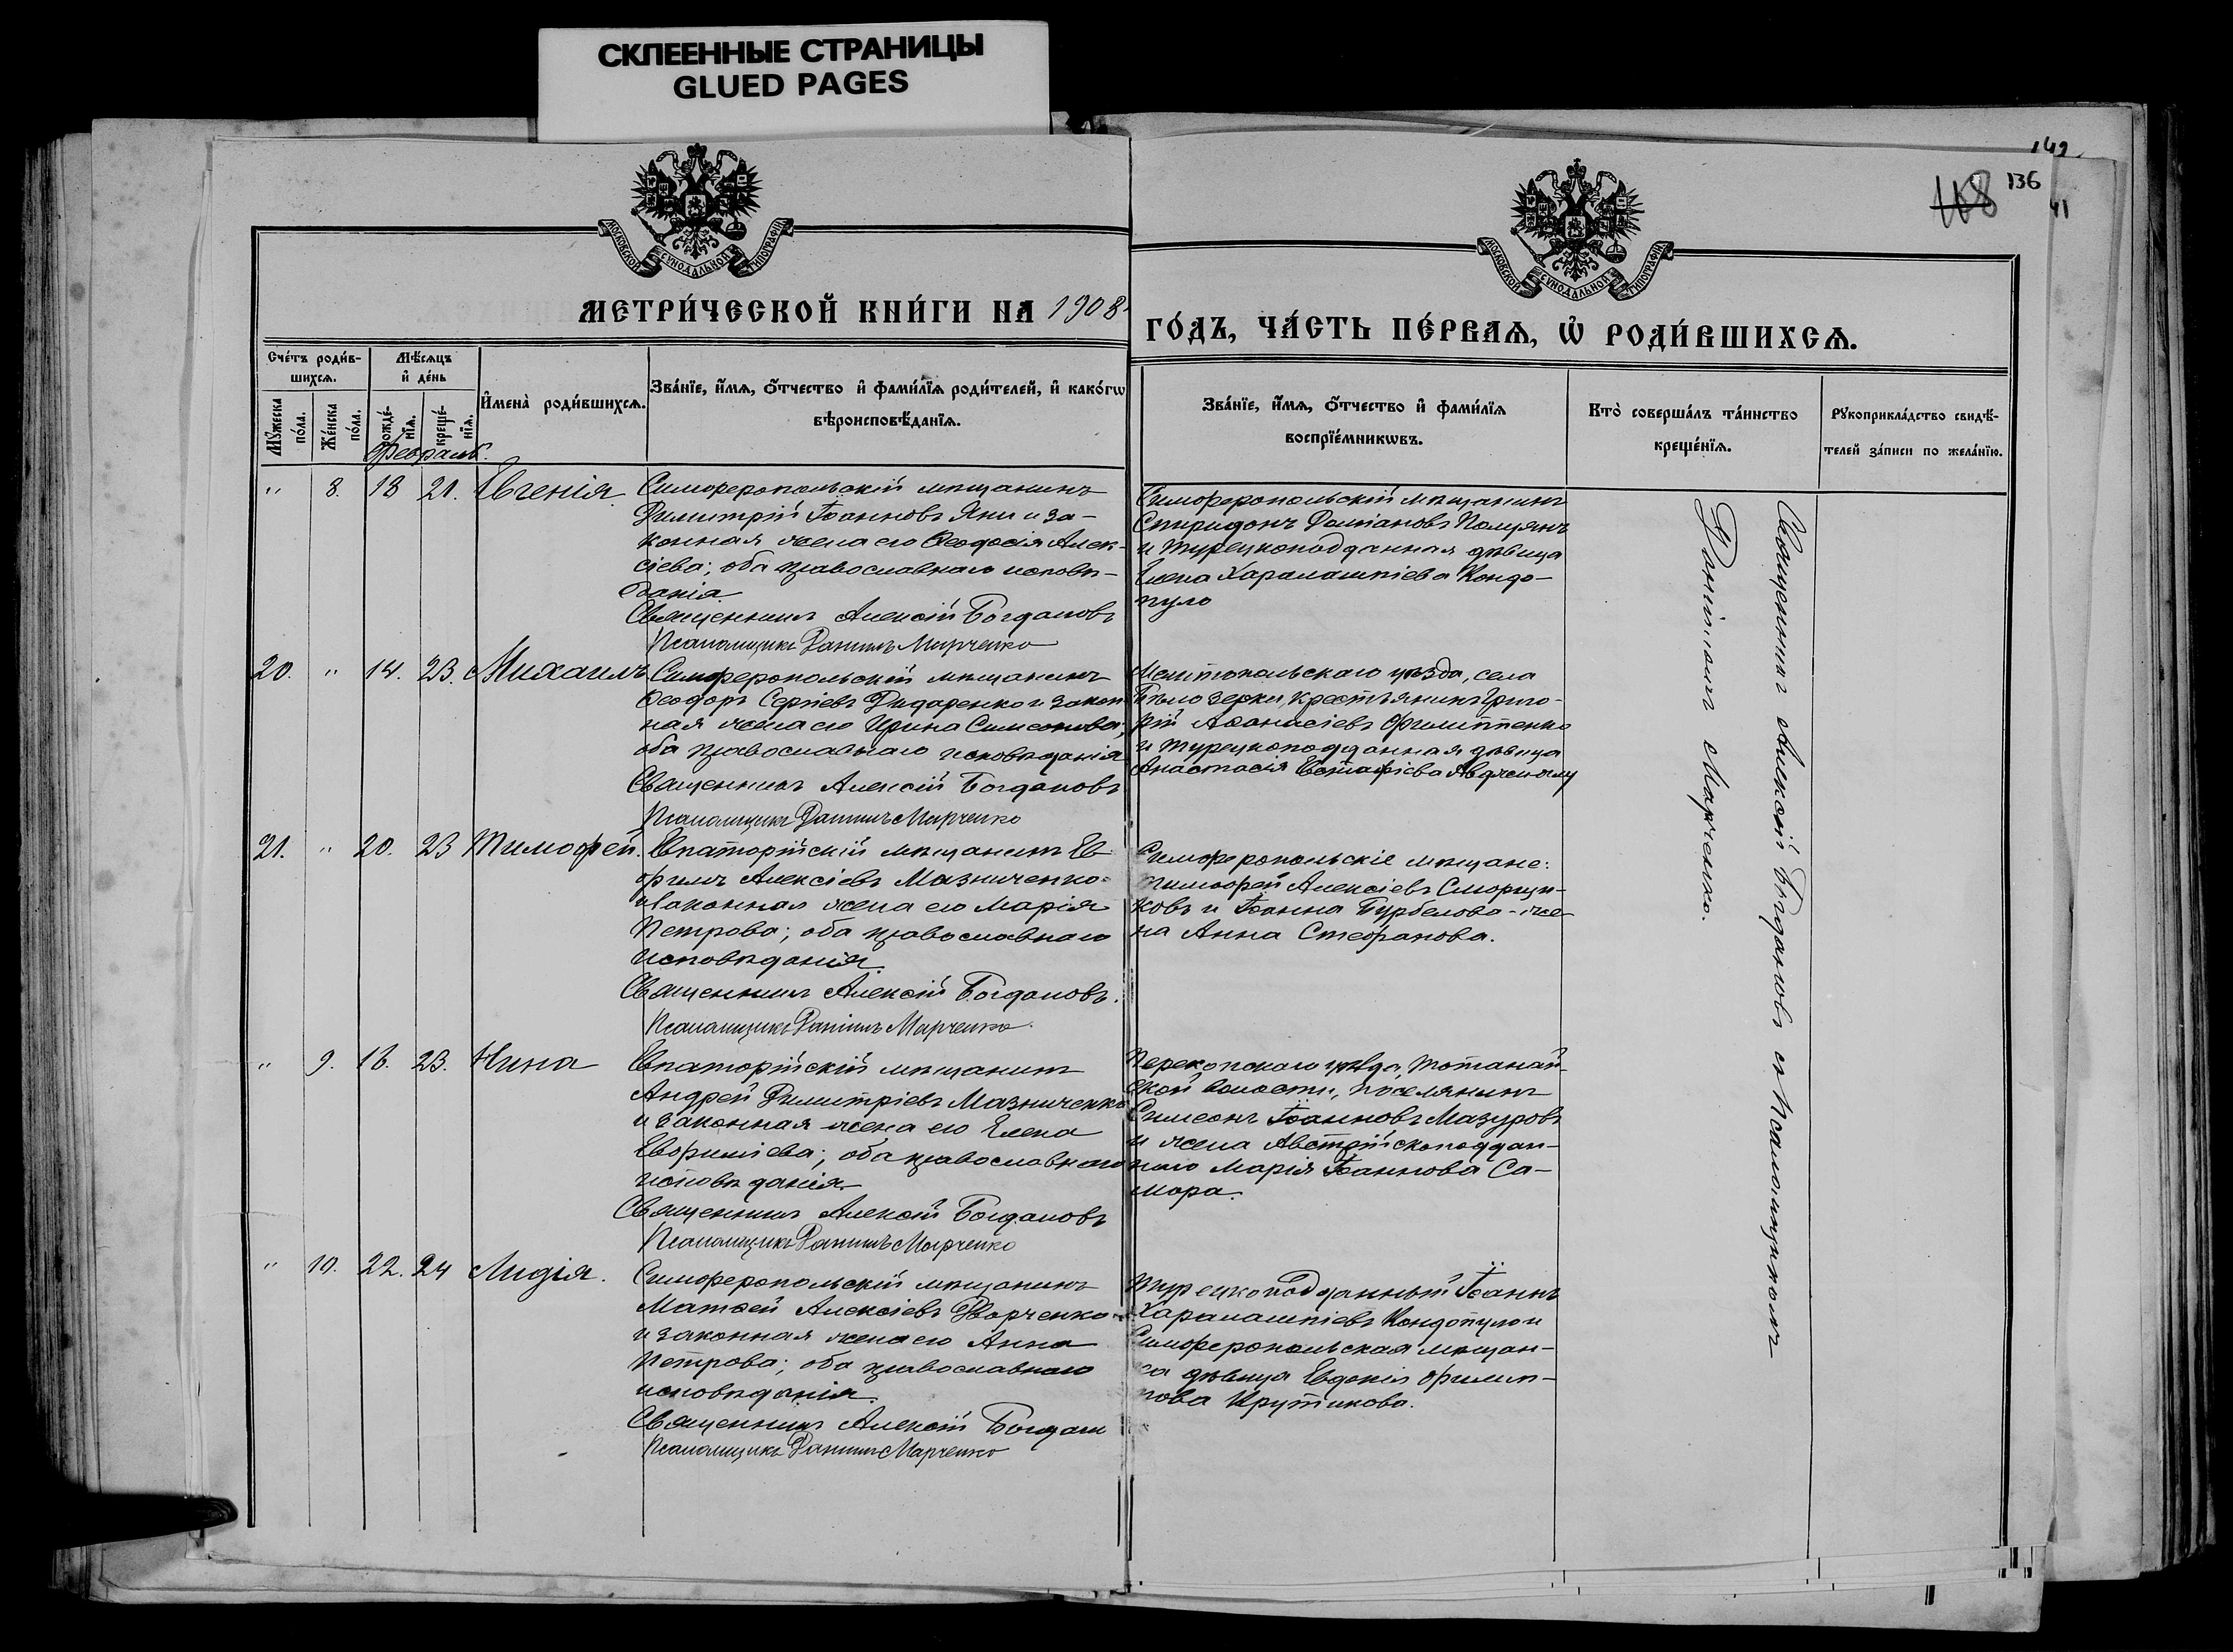 СКЛЕЕННЫЕ СТРАНИЦЫ
GLUED PAGES
142
136
108
41
МОСКОВСКОЙ СУНОДАЛЬНОЙ ТИПОГРАФІИ
МОСКОВСКОЙ СУНОДАЛЬНОЙ ТИПОГРАФІИ
МЕТРИ́ЧЕСКОЙ КНИ́ГИ НА 1908
ГО́ДЪ, ЧА́СТЬ ПЕ́РВАѦ, Ѡ҆ РОДИ́ВШИХСѦ.
Сче́тъ роди́в-
шихсѧ.
Мѣ́сѧцъ
и҆ де́нь
Мꙋ́жеска
по́ла.
Же́нска
по́ла.
рожде́-
нїѧ.
креще́-
нїѧ.
И҆мена̀ роди́вшихсѧ.
Зва́нїе, и҆́мѧ, ѻ҆́тчество и҆ фами́лїѧ роди́телей, и҆ како́гѡ
вѣроисповѣ́данїѧ.
Зва́нїе, и҆́мѧ, ѻ҆́тчество и҆ фами́лїѧ
воспрїе́мникѡвъ.
Кто̀ соверша́лъ та́инство
креще́нїѧ.
Рꙋкоприкла́дство свидѣ́-
телей за́писи по жела́нїю.
Февраль.
" 8. 18 21. Евгенія
Симферопольскій мѣщанинъ
Димитрій Іоанновъ Яни и за-
конная жена его Ѳеодосія Алек-
сіева; оба православнаго исповѣ-
данія
Священникъ Алексій Богдановъ
Псаломщикъ Даніилъ Марченко
Симферопольскій мѣщанинъ
Спиридонъ
и турецкоподданная дѣвица
Елена Харалампіева Кондо-
пуло
20. " 14. 23. Михаилъ
Симферопольскій мѣщанинъ
Ѳеодоръ Сергіевъ Дидаренко и закон
ная жена его Ирина Симеонова;
оба православнаго исповѣданія
Священникъ Алексій Богдановъ
Псаломщикъ Даніилъ Марченко
Мелитопольскаго уѣзда, села
Бѣлозерки, крестьянинъ Григо-
рій Аѳанасіевъ Филиппенко
и турецкоподданная дѣвица
Анастасія Евстафіева
21. " 20. 23 Тимофей.
Евпаторійскій мѣщанинъ Ев
фимъ Алексіевъ Мазниченко
и законная жена его Марія
Петрова; оба православнаго
исповѣданія
Священникъ Алексій Богдановъ.
Псаломщикъ Даніилъ Марченко
Симферопольскіе мѣщане:
Тимофей Алексіевъ Сморщи-
ковъ и Іоанна Бурбелова - же-
на Анна Стефанова.
" 9. 18. 23. Нина
Евпаторійскій мѣщанинъ
Андрей Димитріевъ Мазниченко
и законная жена его Елена
Евфиміева; оба православнаго
исповѣданія
Священникъ Алексій Богдановъ
Псаломщикъ Даніилъ Марченко
Перекопскаго уѣзда, Тотанай-
ской волости, поселянинъ
Симеонъ Іоанновъ Мазуровъ
и жена Австрійскоподдан-
наго Марія Іоаннова Са-
мора.
" 10. 22. 24 Лидія.
Симферопольскій мѣщанинъ
Матѳей Алексіевъ Дворченко
и законная жена его Анна
Петрова; оба православнаго
исповѣданія.
Священникъ Алексій Богдан
Псаломщикъ Даніилъ Марченко
Турецкоподданный Іоаннъ
Харалампіевъ Кондопуло и
Симферопольская мѣщан-
ка дѣвица Евдокія Филип-
пова Крутикова.
Священникъ Алексій Богдановъ съ Псаломщикомъ
Даніиломъ Марченко.